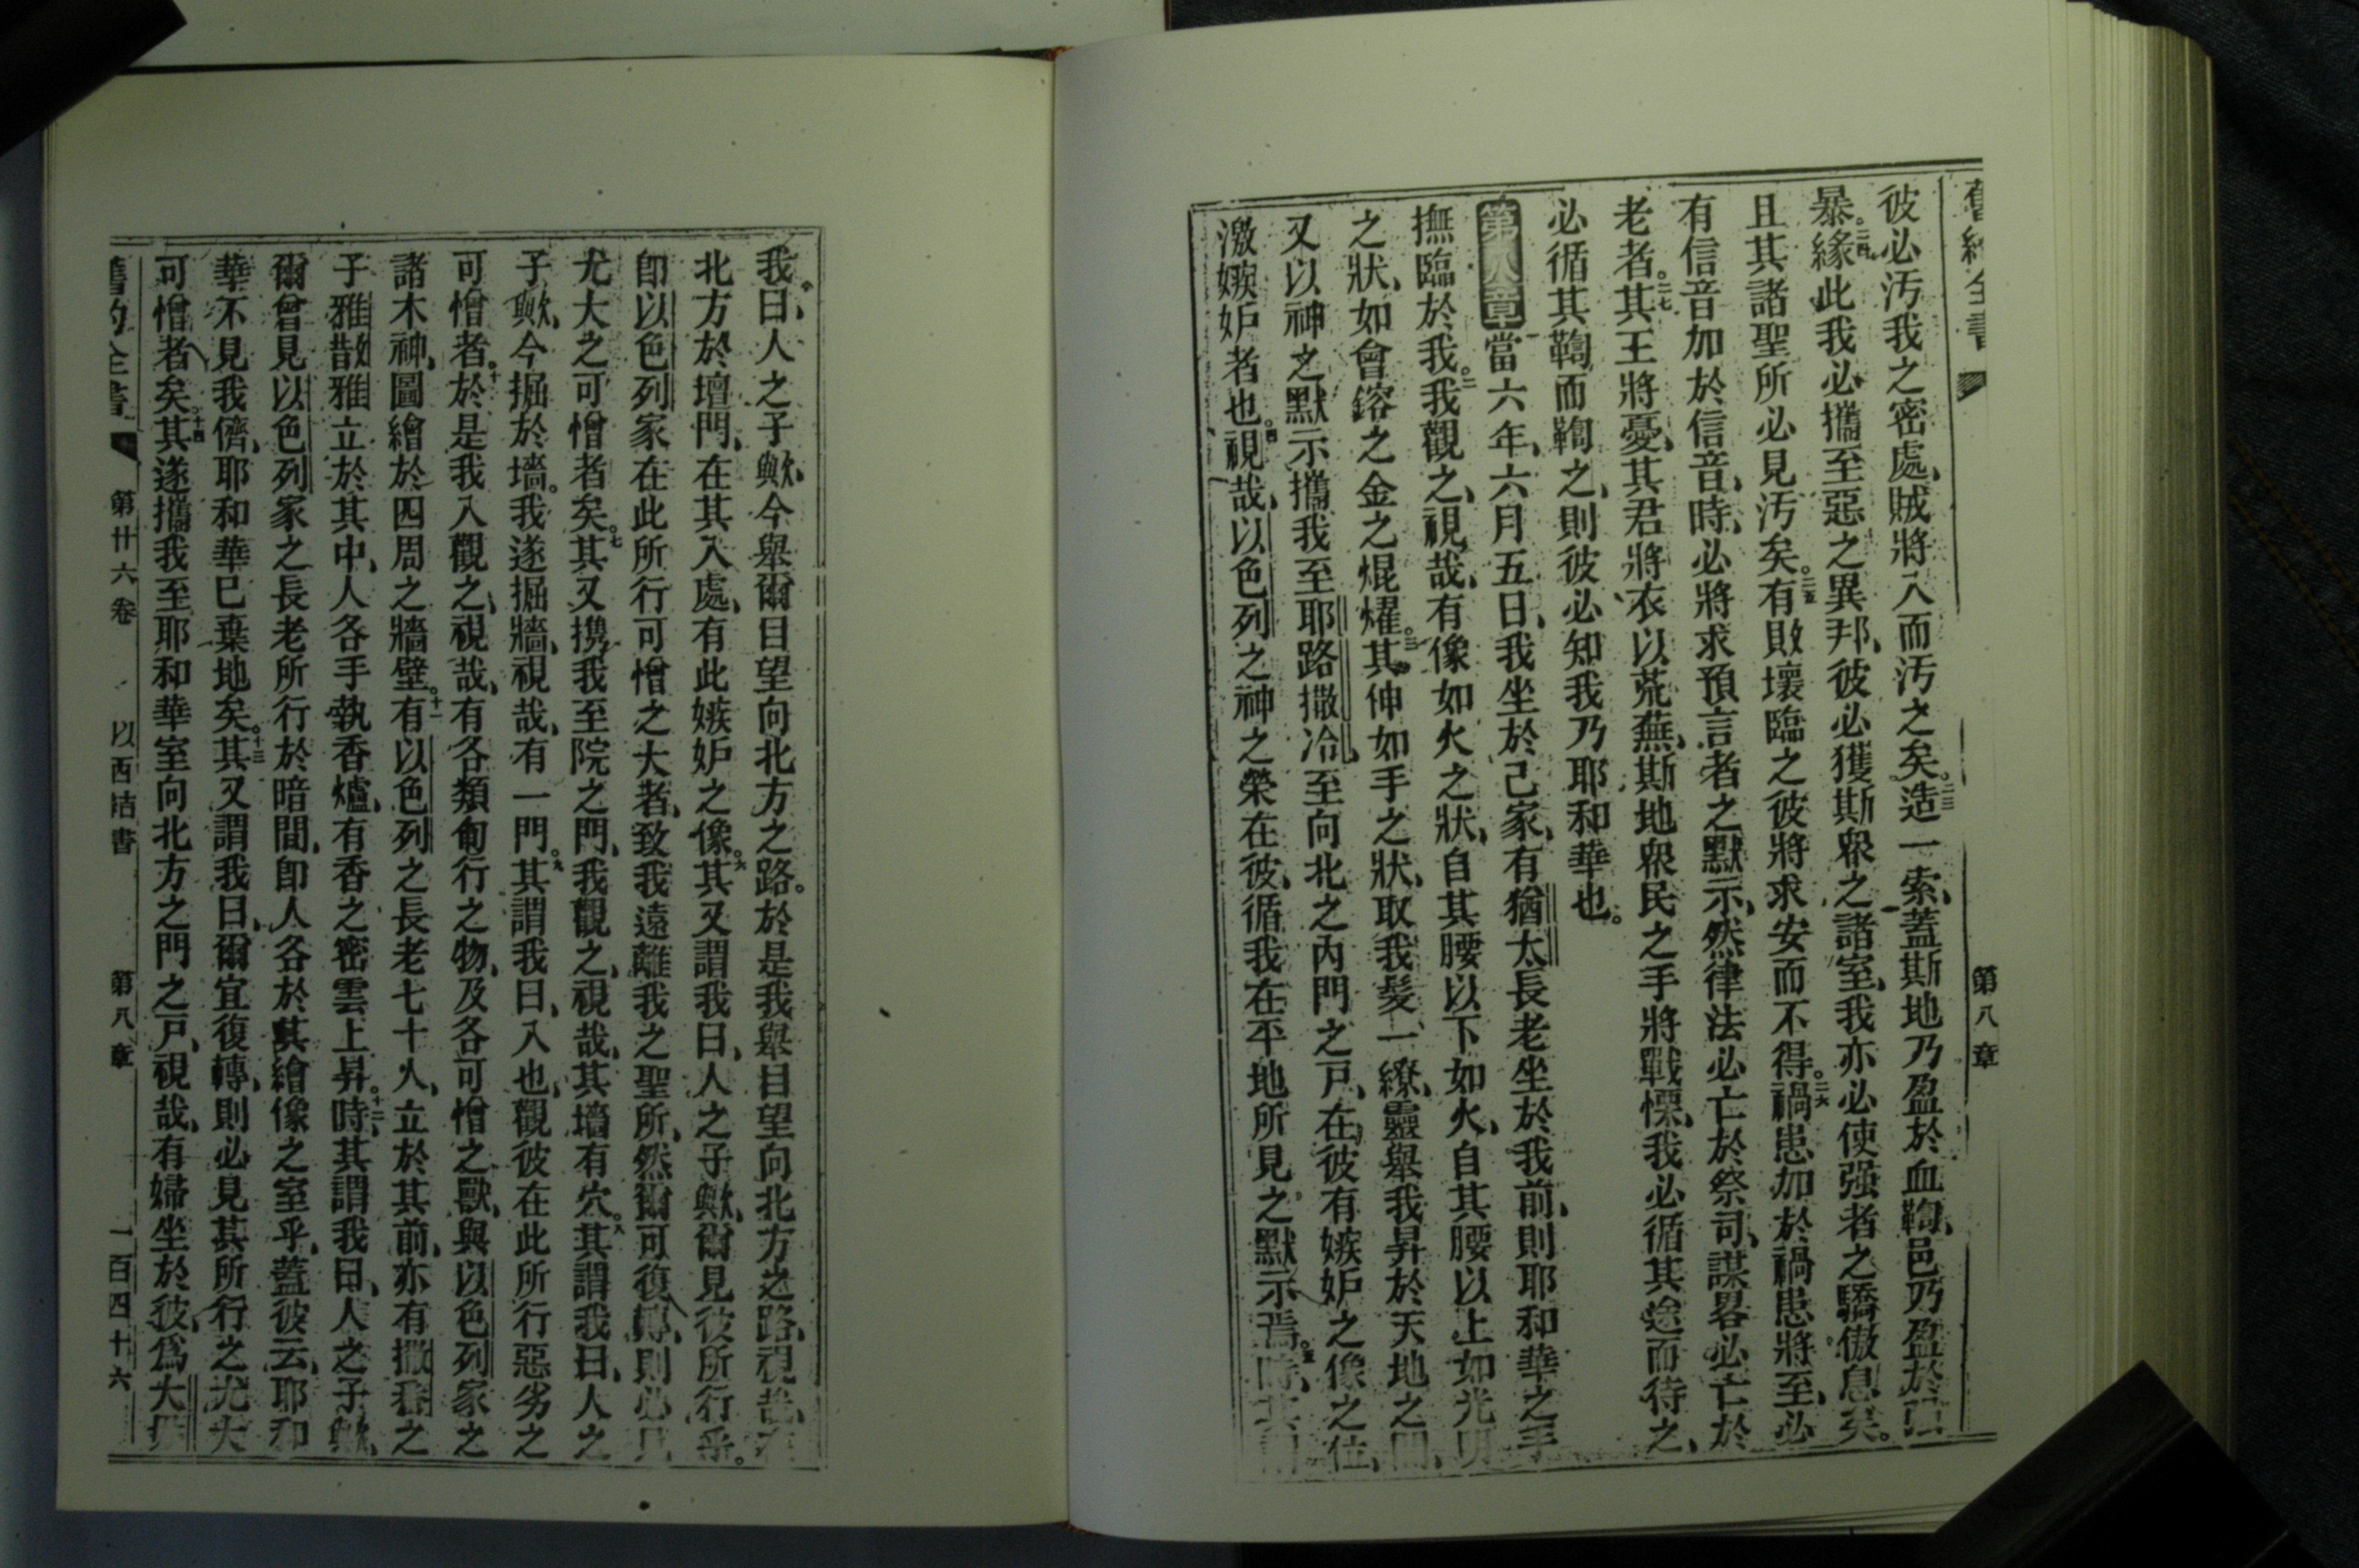 舊約全書
第八章
彼必汚我之密處、賊將入而汚之矣。二三造一索、蓋斯地乃盈於血鞫、邑乃盈於强
暴。二四緣此我必攜至惡之異邦、彼必獲斯衆之諸室、我亦必使强者之驕傲息矣。
且其諸聖所必見汚矣。二五有敗壞臨之彼將求安而不得。二六禍患加於禍患將至、必
有信音加於信音、時、必將求預言者之默示、然律法必亡於祭司、謀畧必亡於
老者。二七其王將憂、其君將衣以荒蕪、斯地衆民之手將戰慄、我必循其途而待之、
必循其鞫而鞫之、則彼必知我乃耶和華也。
第八章當六年、六月五日、我坐於己家、有猶太長老坐於我前、則耶和華之手
撫臨於我。二我觀之、視哉、有像如火之狀、自其腰以下如火、自其腰以上如光明
之狀、如會鎔之金之焜燿。三其伸如手之狀、取我髮一繚、靈舉我昇於天地之間、
又以神之默示攜我至耶路撒冷、至向北之內門之戸、在彼有嫉妒之像之位、
激嫉妒者也。四視哉、以色列之神之榮在彼、循我在平地所見之默示焉。五時、其謂
我曰、人之子歟、今舉爾目望向北方之路。於是我舉目望向北方之路、視哉、在
北方於壇門、在其入處、有此嫉妒之像。六其又謂我曰、人之子歟、爾見彼所行乎。
卽以色列家在此所行可憎之大者、致我遠離我之聖所、然爾可復轉、則必見
尤大之可憎者矣。七其又攜我至院之門、我觀之、視哉、其墻有穴。八其謂我曰、人之
子歟、今掘於墻。我遂掘牆、視哉、有一門。九其謂我曰、入也、觀彼在此所行惡劣之
可憎者。十於是我入觀之、視哉、有各類匍行之物、及各可憎之獸、與以色列家之
諸木神、圖繪於四周之牆壁。十一有以色列之長老七十人、立於其前、亦有撒番之
子雅散雅立於其中、人各手執香爐、有香之密雲上昇。十二時、其謂我曰、人之子歟、
爾曾見以色列家之長老所行於暗間、卽人各於其繪像之室乎、蓋彼云、耶和
華不見我儕、耶和華已棄地矣。十三其又謂我曰、爾宜復轉、則必見其所行之尤大
可憎者矣。十四其遂攜我至耶和華室向北方之門之戸、視哉、有婦坐於彼、爲大模
舊約全書 第廿六卷 以西結書 第八章 一百四十六